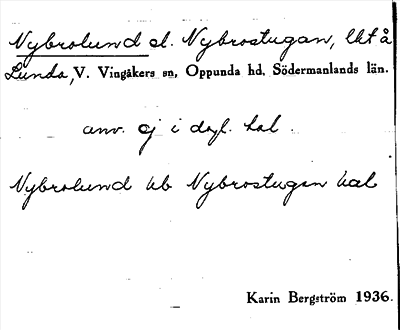 Nybrolund el. Nybrostugan, lht å
Lunda, V. Vingåkers sn, Oppunda hd, Södermanlands län.
anv. ej i dagl. tal.
Nybrolund kb Nybrostugan kal
Karin Bergström 1936.